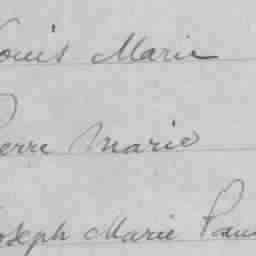 Louis Marie
Pierre Marie
Joseph Marie Paul